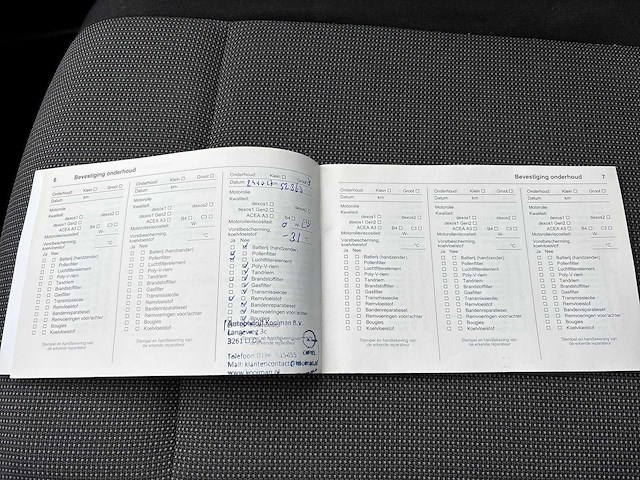 6 Bevestiging onderhoud
Onderhoud: Klein ☐ Groot ☐
Datum km
Motorolie
Kwaliteit:
dexos1 ☐ dexos2 ☐
dexos1 Gen2 ☐
ACEA A3 ☐ B4 ☐ C3 ☐
Motorolieviscositeit W-
Vorstbescherming, koelvloeistof °C
Ja Nee
☐ ☐ Batterij (handzender)
☐ ☐ Pollenfilter
☐ ☐ Luchtfilterelement
☐ ☐ Poly-V-riem
☐ ☐ Tandriem
☐ ☐ Brandstoffilter
☐ ☐ Gasfilter
☐ ☐ Transmissieolie
☐ ☐ Remvloeistof
☐ ☐ Bandenreparatieset
☐ ☐ Remvoeringen voor/achter
☐ ☐ Bougies
☐ ☐ Koelvloeistof
Stempel en handtekening van
de erkende reparateur
Onderhoud: Klein ☐ Groot ☐
Datum km
Motorolie
Kwaliteit:
dexos1 ☐ dexos2 ☐
dexos1 Gen2 ☐
ACEA A3 ☐ B4 ☐ C3 ☐
Motorolieviscositeit W-
Vorstbescherming, koelvloeistof °C
Ja Nee
☐ ☐ Batterij (handzender)
☐ ☐ Pollenfilter
☐ ☐ Luchtfilterelement
☐ ☐ Poly-V-riem
☐ ☐ Tandriem
☐ ☐ Brandstoffilter
☐ ☐ Gasfilter
☐ ☐ Transmissieolie
☐ ☐ Remvloeistof
☐ ☐ Bandenreparatieset
☐ ☐ Remvoeringen voor/achter
☐ ☐ Bougies
☐ ☐ Koelvloeistof
Stempel en handtekening van
de erkende reparateur
Onderhoud: Klein ☐ Groot
Datum
Motorolie
Kwaliteit:
dexos1 ☐ dexos2 ☐
dexos1 Gen2 ☐
ACEA A3 ☐ B4 ☐ C3 ☐
Motorolieviscositeit
Vorstbescherming, koelvloeistof -31
Ja Nee
Batterij (handzender)
Pollenfilter
Luchtfilterelement
Poly-V-riem
Tandriem
Brandstoffilter
Gasfilter
Transmissieolie
Remvloeistof
Bandenreparatieset
Remvoeringen voor/achter
Bougies
Autobedrijf Kooiman B.V.
Langeweg 3c
3261
Telefoon:
Mail: klantencontact@kooiman.nl
www.kooiman.nl
Bevestiging onderhoud 7
Onderhoud: Klein ☐ Groot ☐
Datum km
Motorolie
Kwaliteit:
dexos1 ☐ dexos2 ☐
dexos1 Gen2 ☐
ACEA A3 ☐ B4 ☐ C3 ☐
Motorolieviscositeit W-
Vorstbescherming, koelvloeistof °C
Ja Nee
☐ ☐ Batterij (handzender)
☐ ☐ Pollenfilter
☐ ☐ Luchtfilterelement
☐ ☐ Poly-V-riem
☐ ☐ Tandriem
☐ ☐ Brandstoffilter
☐ ☐ Gasfilter
☐ ☐ Transmissieolie
☐ ☐ Remvloeistof
☐ ☐ Bandenreparatieset
☐ ☐ Remvoeringen voor/achter
☐ ☐ Bougies
☐ ☐ Koelvloeistof
Stempel en handtekening van
de erkende reparateur
Onderhoud: Klein ☐ Groot ☐
Datum km
Motorolie
Kwaliteit:
dexos1 ☐ dexos2 ☐
dexos1 Gen2 ☐
ACEA A3 ☐ B4 ☐ C3 ☐
Motorolieviscositeit W-
Vorstbescherming, koelvloeistof °C
Ja Nee
☐ ☐ Batterij (handzender)
☐ ☐ Pollenfilter
☐ ☐ Luchtfilterelement
☐ ☐ Poly-V-riem
☐ ☐ Tandriem
☐ ☐ Brandstoffilter
☐ ☐ Gasfilter
☐ ☐ Transmissieolie
☐ ☐ Remvloeistof
☐ ☐ Bandenreparatieset
☐ ☐ Remvoeringen voor/achter
☐ ☐ Bougies
☐ ☐ Koelvloeistof
Stempel en handtekening van
de erkende reparateur
Onderhoud: Klein ☐ Groot ☐
Datum km
Motorolie
Kwaliteit:
dexos1 ☐ dexos2 ☐
dexos1 Gen2 ☐
ACEA A3 ☐ B4 ☐ C3 ☐
Motorolieviscositeit W-
Vorstbescherming, koelvloeistof °C
Ja Nee
☐ ☐ Batterij (handzender)
☐ ☐ Pollenfilter
☐ ☐ Luchtfilterelement
☐ ☐ Poly-V-riem
☐ ☐ Tandriem
☐ ☐ Brandstoffilter
☐ ☐ Gasfilter
☐ ☐ Transmissieolie
☐ ☐ Remvloeistof
☐ ☐ Bandenreparatieset
☐ ☐ Remvoeringen voor/achter
☐ ☐ Bougies
☐ ☐ Koelvloeistof
Stempel en handtekening van
de erkende reparateur